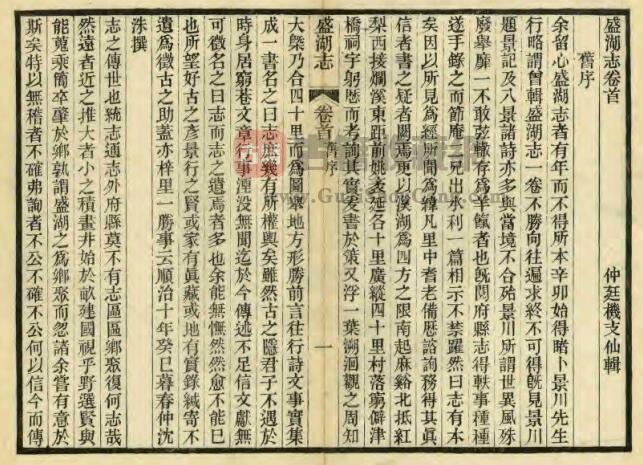 盛湖志卷首
仲廷機支仙輯
舊序
余留心盛湖志者有年而不得所本辛卯始得睹卜景川先生
行略謂曾輯盛湖志一卷不勝向往遍求終不可得既見景川
題景記及八景諸詩亦多與當境不合殆景川所謂世異風殊
廢舉靡一不敢弦轍存為羊氣者也既閱府縣志得軼事種種
遂手錄之而節庵 兄出水利一篇相示不禁躍然曰志有本
矣因以所見為經所聞為緯凡里中耆老備歷諮詢務得其眞
信者書之疑者闕焉更以盛湖為四方之限南起麻谿北抵紅
梨西接爛溪東距前姚袤延各十里廣縱四十里村落窮僻津
橋祠宇躬歷而考詢其實爰書於策又浮一葉溯洄觀之周知
盛湖志
卷首 舊序
一
大槩乃合四十里而為圖寨地方形勝前言往行詩文事實集
成一書名之曰志庶幾有所權輿矣雖然古之隱君子不遇於
時身居窮巷文章行事湮没無聞迄於今傳述不足信文獻無
可徵名之曰志而志之遺焉者多也余能無慨然然愈不能已
也所望好古之彥景行之賢或家有眞藏或地有實錄緘寄不
遺為徵古之助蓋亦梓里一勝事云順治十年癸巳暮春仲沈
洙撰
志之傳世也統志通志外府縣莫不有志區區鄉聚復何志哉
然遠者近之推大者小之積畫井始於畝建國視乎野選賢與
能蒐乘簡卒肇於鄉孰謂盛湖之為鄉聚而忽諸余嘗有意於
斯矣特以無稽者不確弗詢者不公不確不公何以信今而傳